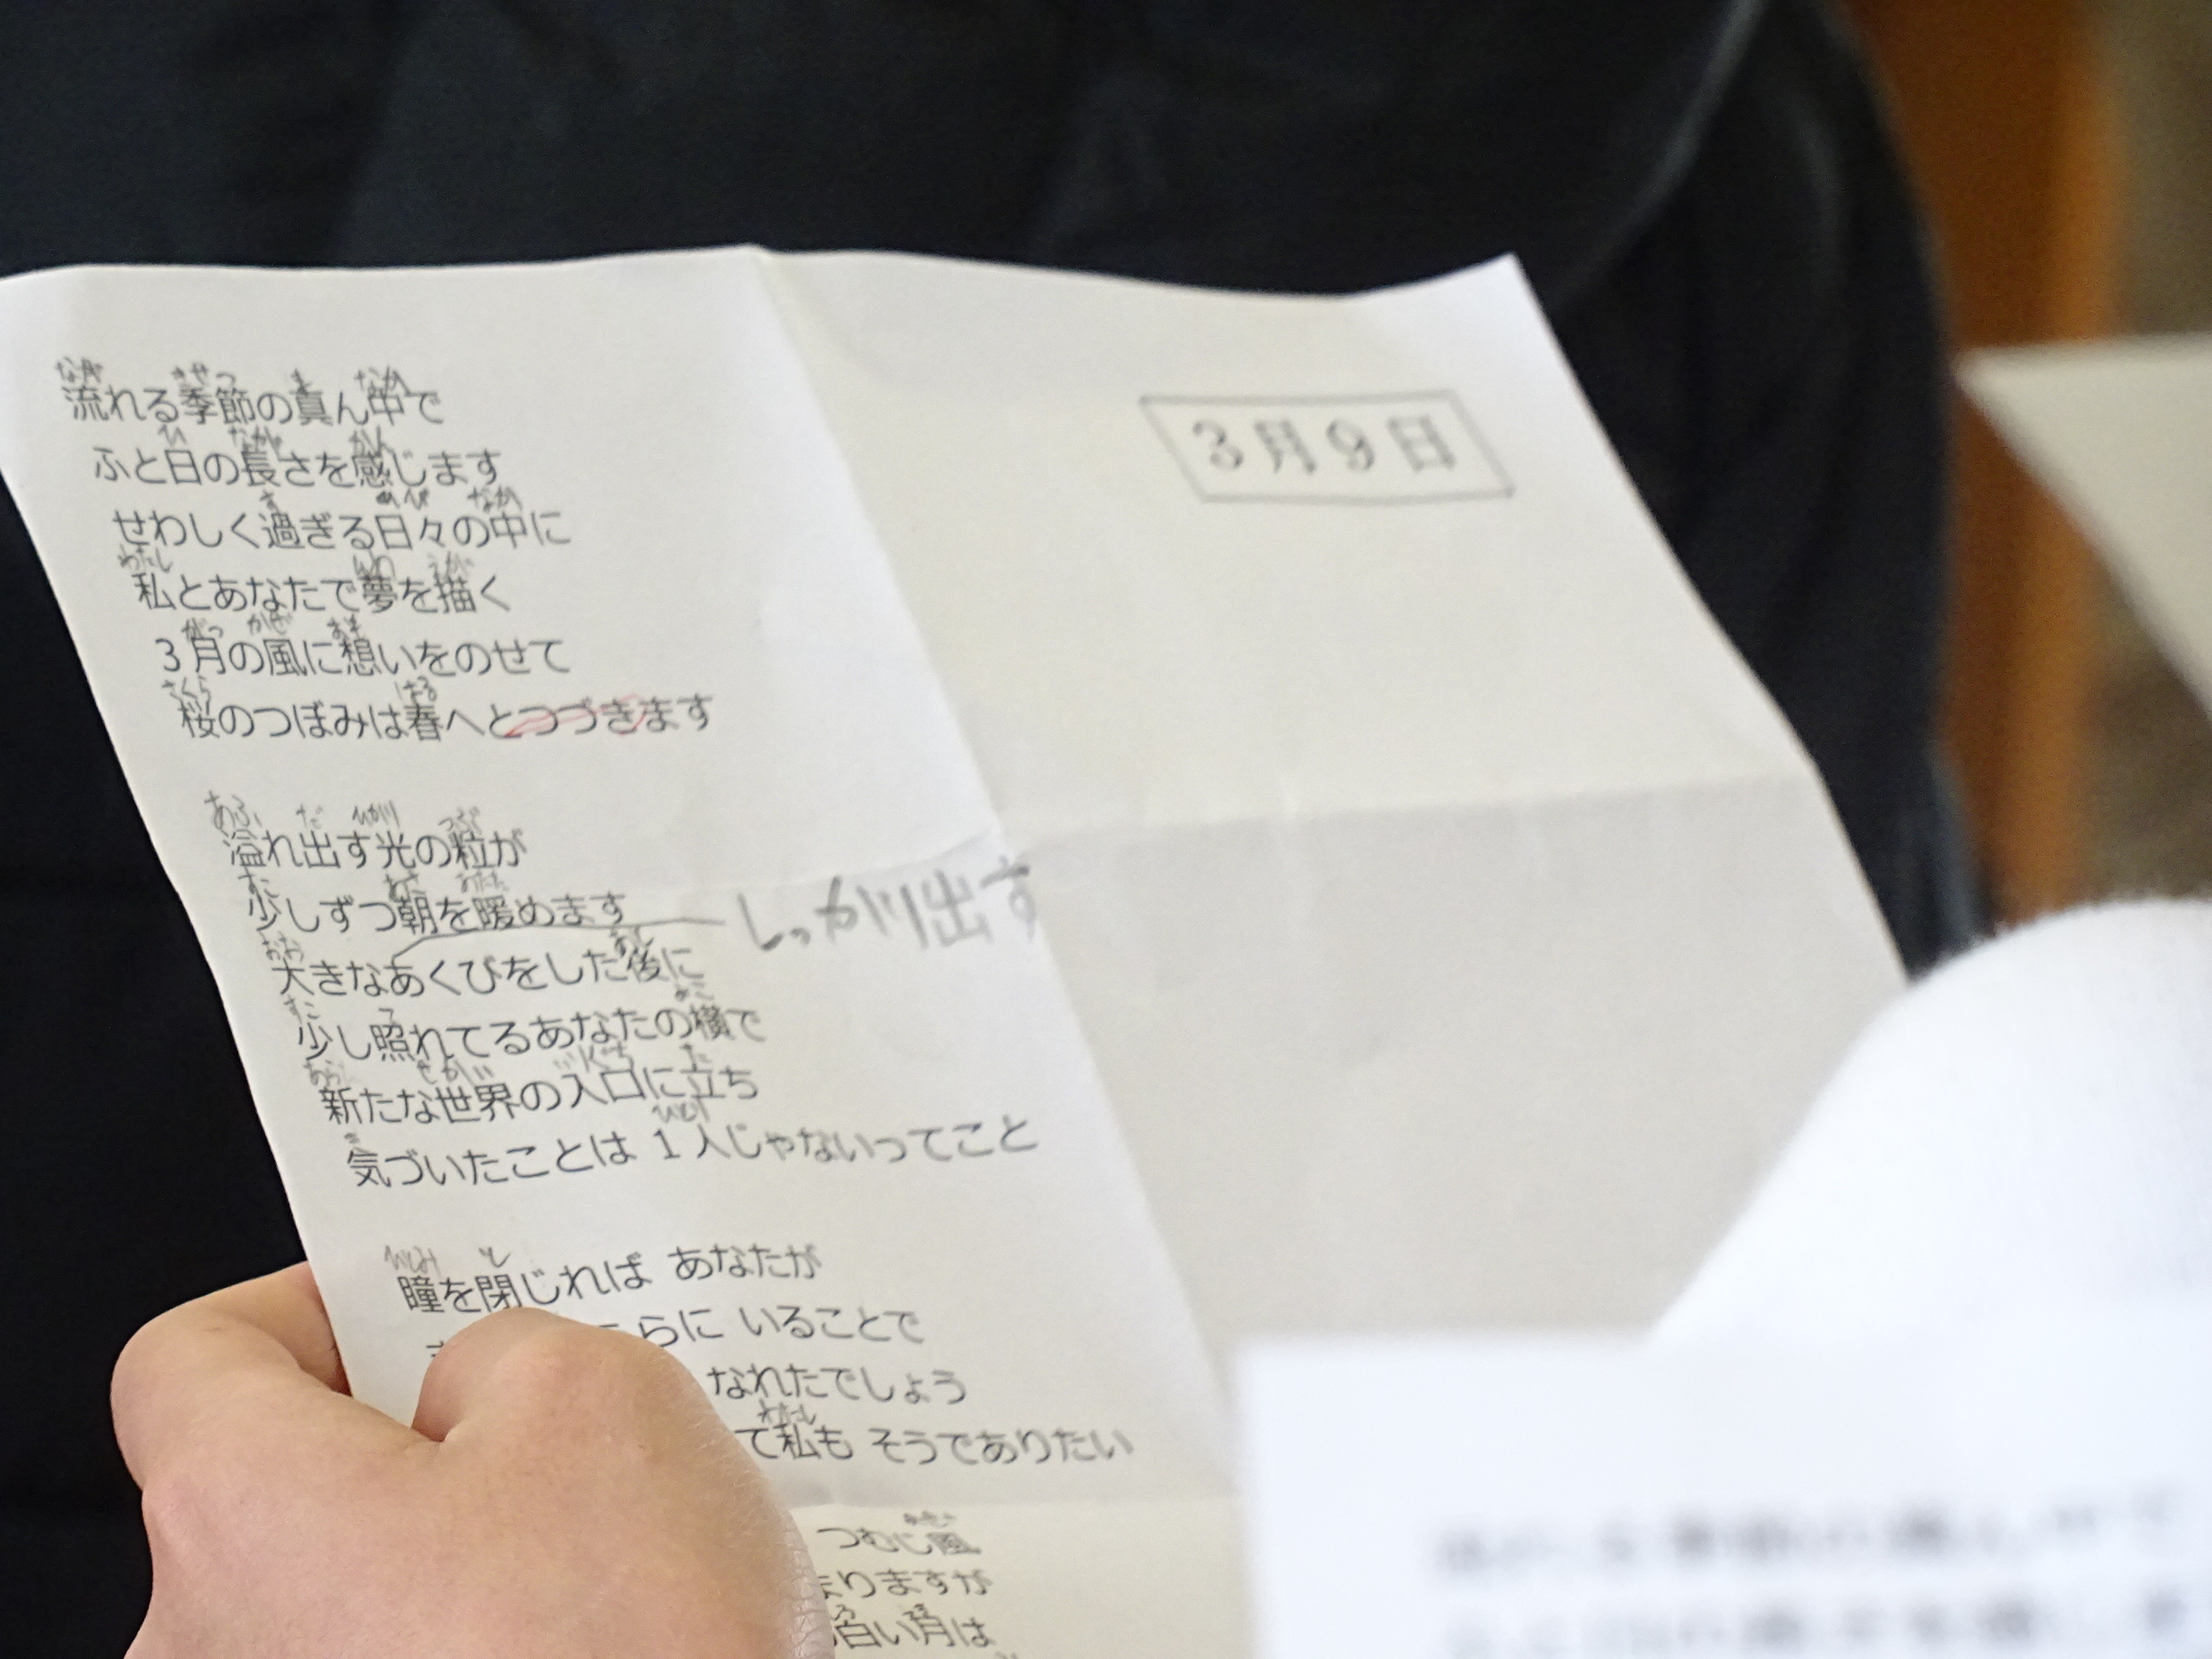 3月9日
流れる季節の真ん中で
ふと日の長さを感じます
せわしく過ぎる日々の中に
私とあなたで夢を描く
3月の風に想いをのせて
桜のつぼみは春へとつづきます
溢れ出す光の粒が
少しずつ朝を暖めます
しっかり出す
大きなあくびをした後に
少し照れてるあなたの横で
新たな世界の入口に立ち
気づいたことは 1人じゃないってこと
瞳を閉じれば あなたが
らに いることで
なれたでしょう
て私も そうでありたい
つむじ風
りますが
白い月は